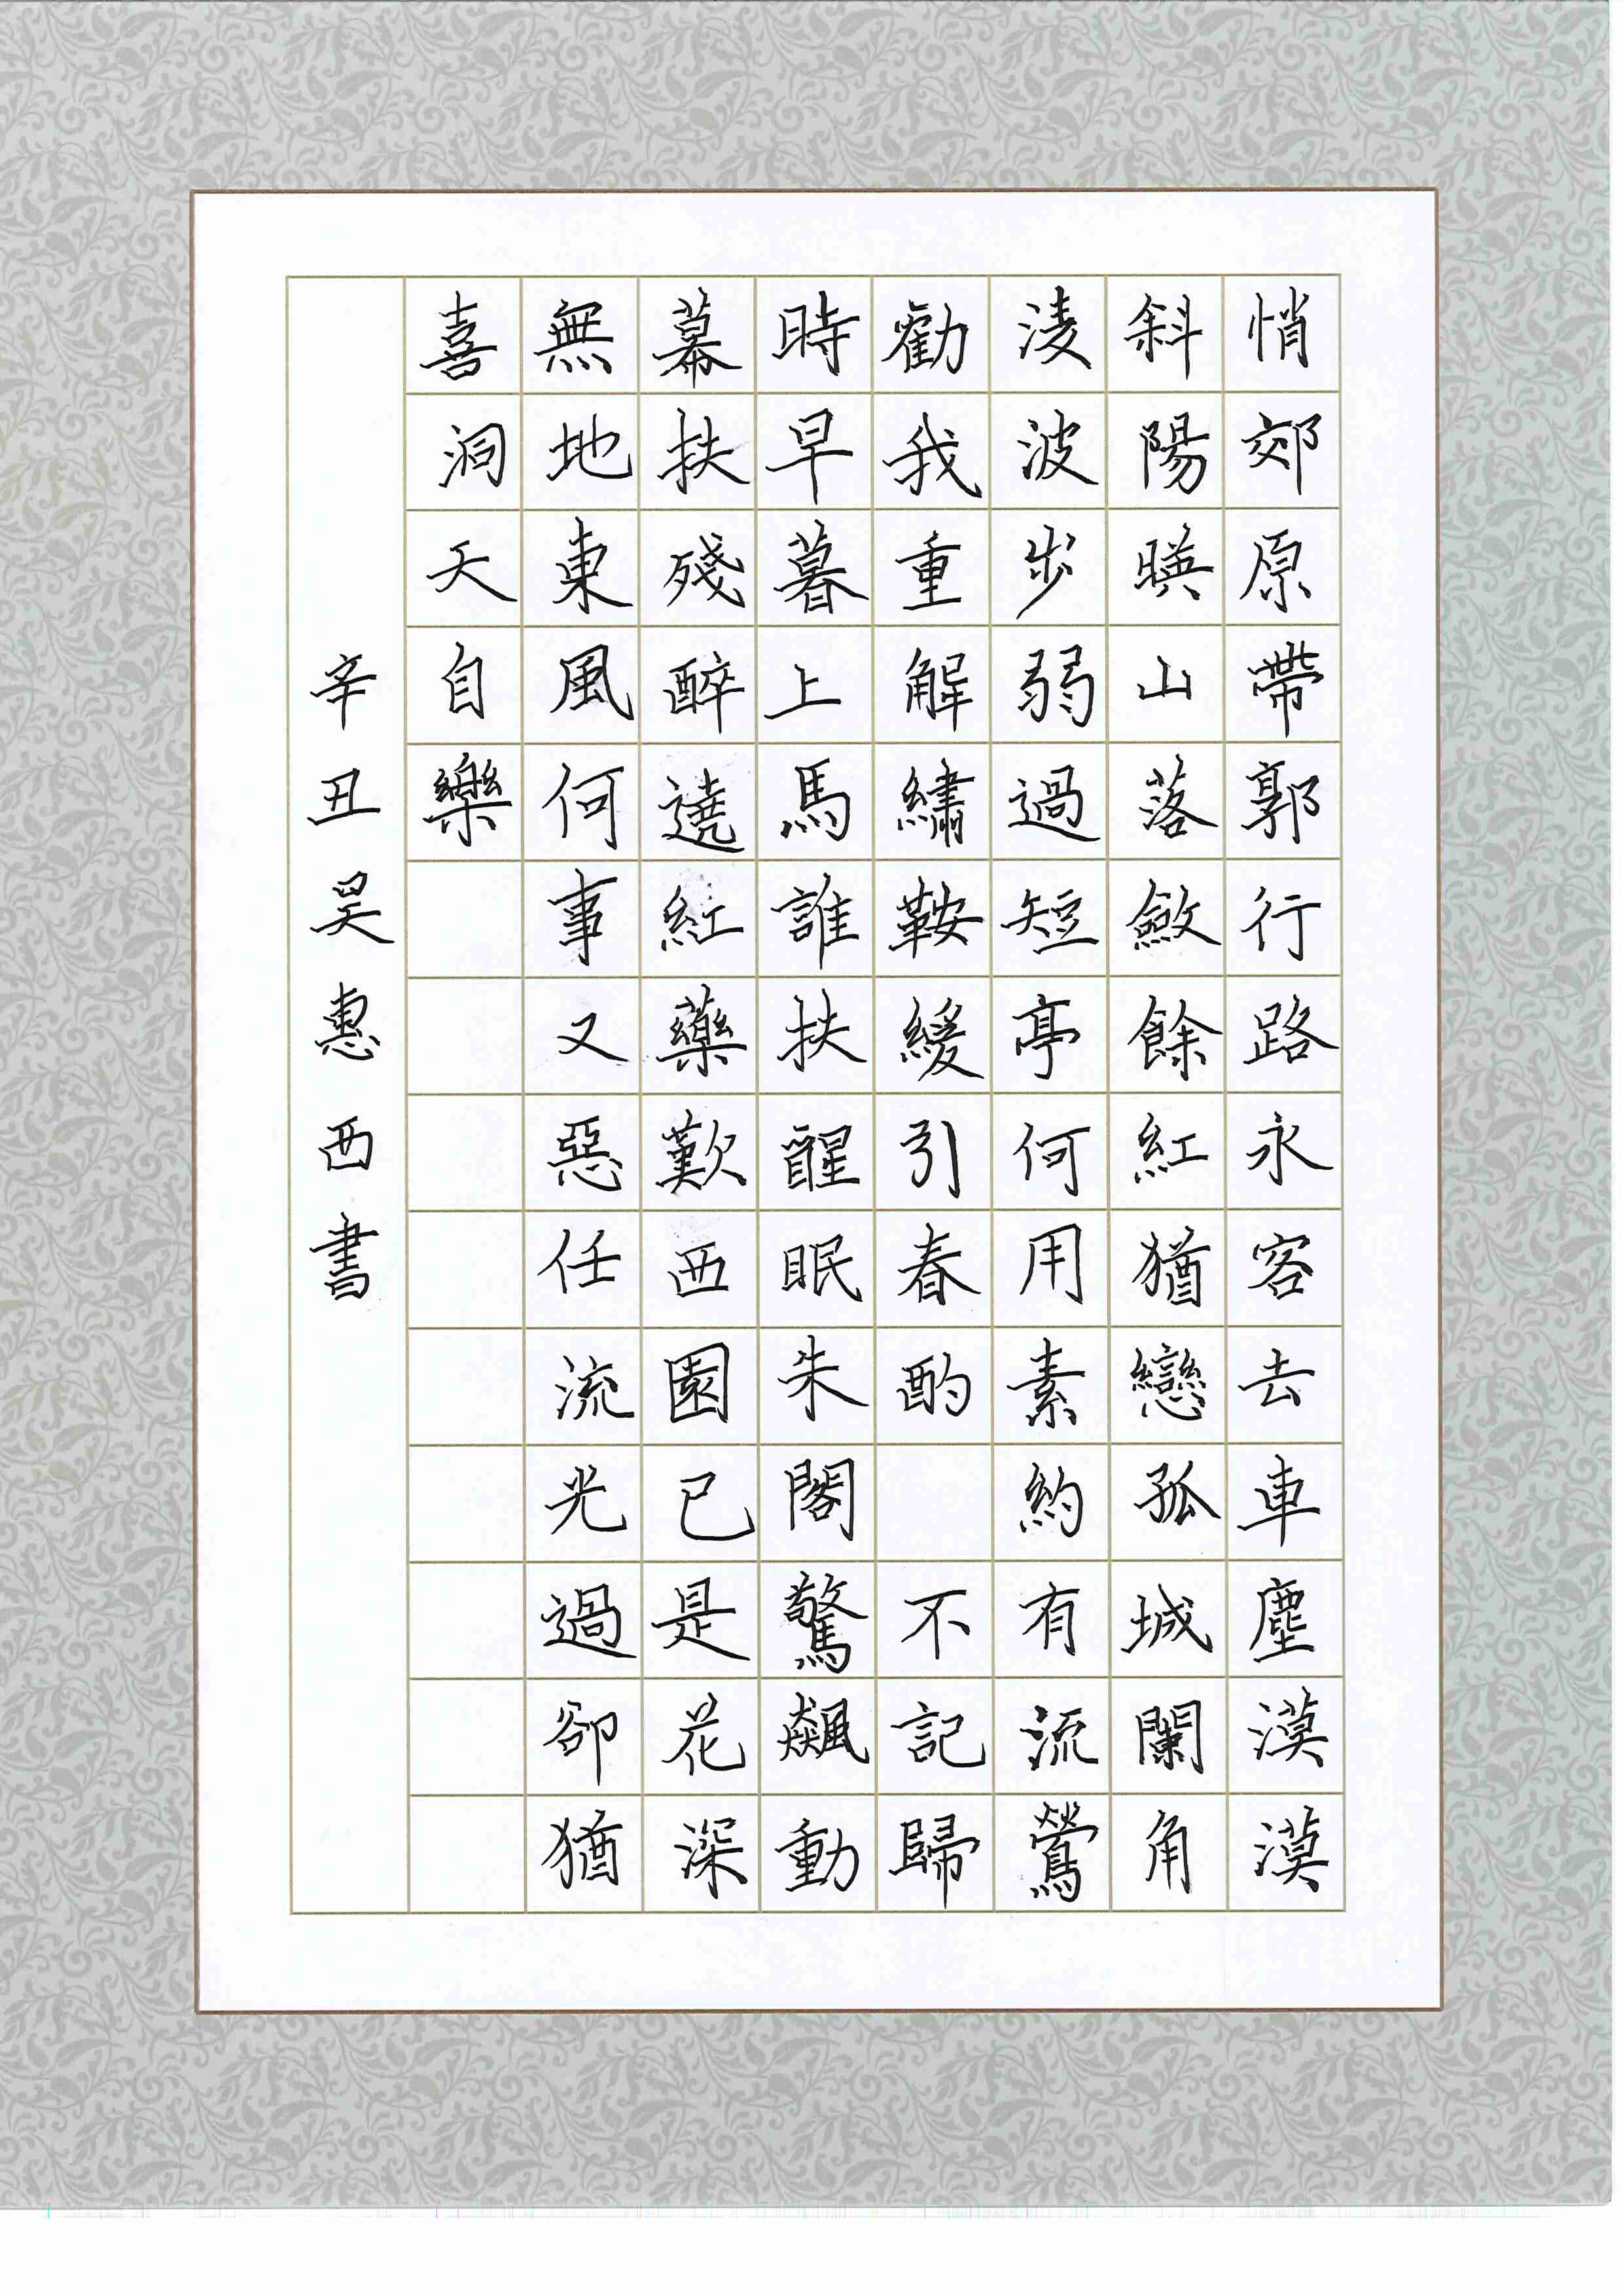 悄郊原帶郭行路永客去車塵漠漠
斜陽暎山落斂餘紅猶戀孤城闌角
淩波步弱過短亭何用素約有流鶯
勸我重解繡鞍緩引春酌 不記歸
時早暮上馬誰扶醒眠朱閣驚飆動
幕扶殘醉遶紅藥歎西園已是花深
無地東風何事又惡任流光過卻猶
喜洞天自樂
辛丑吴惠西書